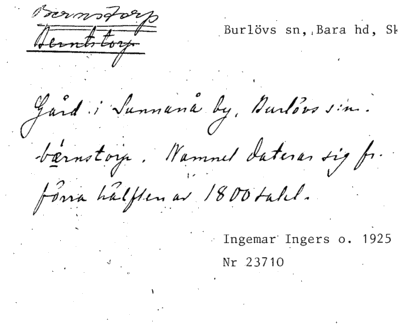 Bernstorp
Berntstorp
Burlövs sn, Bara hd, Sk
Gård i Sunnanå by, Burlövs sn.
bærnstorp. Namnet daterar sig fr.
förra hälften av 1800-talet.
Ingemar Ingers o. 1925
Nr 23710